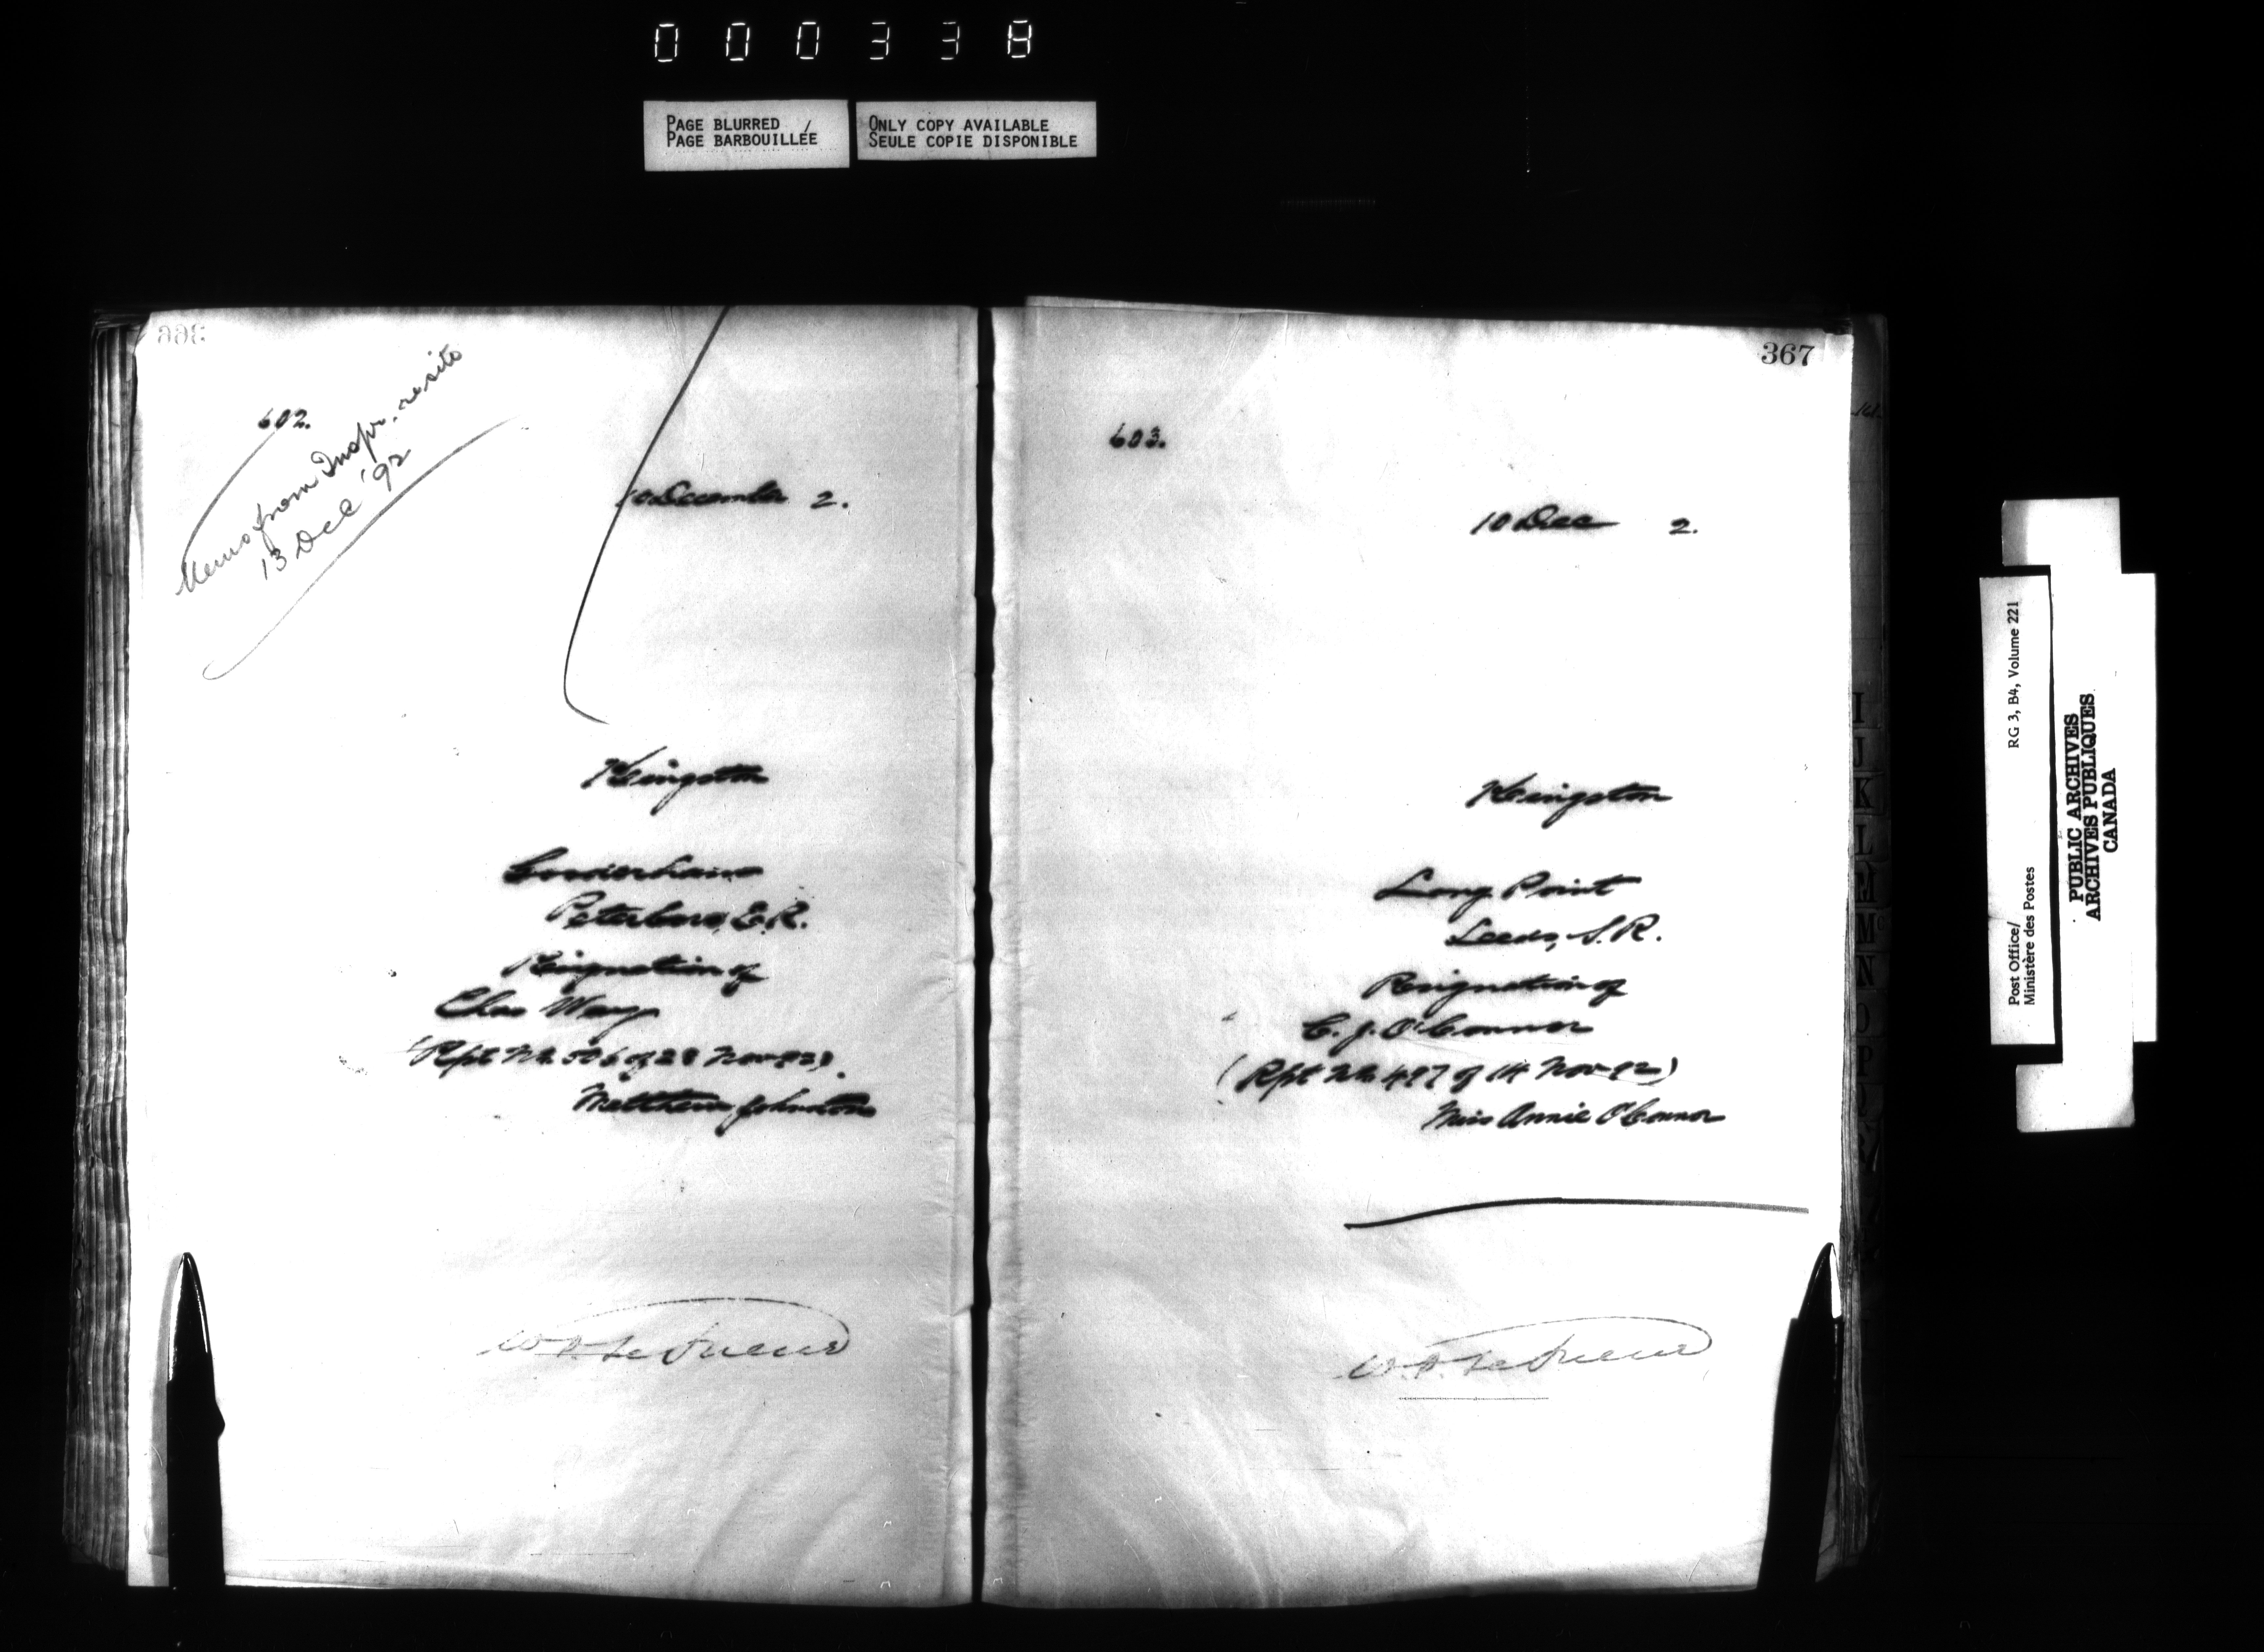 000338
PAGE BLURRED /
PAGE BARBOUILLÉE
ONLY COPY AVAILABLE
SEULE COPIE DISPONIBLE
366
602.
Memo from Inspr. re site
13 Dec '92
10 December 2.
Kingston
Gooderham
Peterboro, E.R.
Resignation of
Chas Way
(Rpt No. 506 of 28 Nov-92).
Matthew Johnston
W. D. LeSueur
367
603.
10 Dec 2.
Kingston
Long Point
Leeds, S.R.
Resignation of
C. J. O'Connor
(Rpt No. 497 of 14 Nov-92)
Miss Annie O'Connor
W. D. LeSueur
I
J
K
L
M
N
O
P
Post Office/
Ministère des Postes
RG 3, B4, Volume 221
PUBLIC ARCHIVES
ARCHIVES PUBLIQUES
CANADA